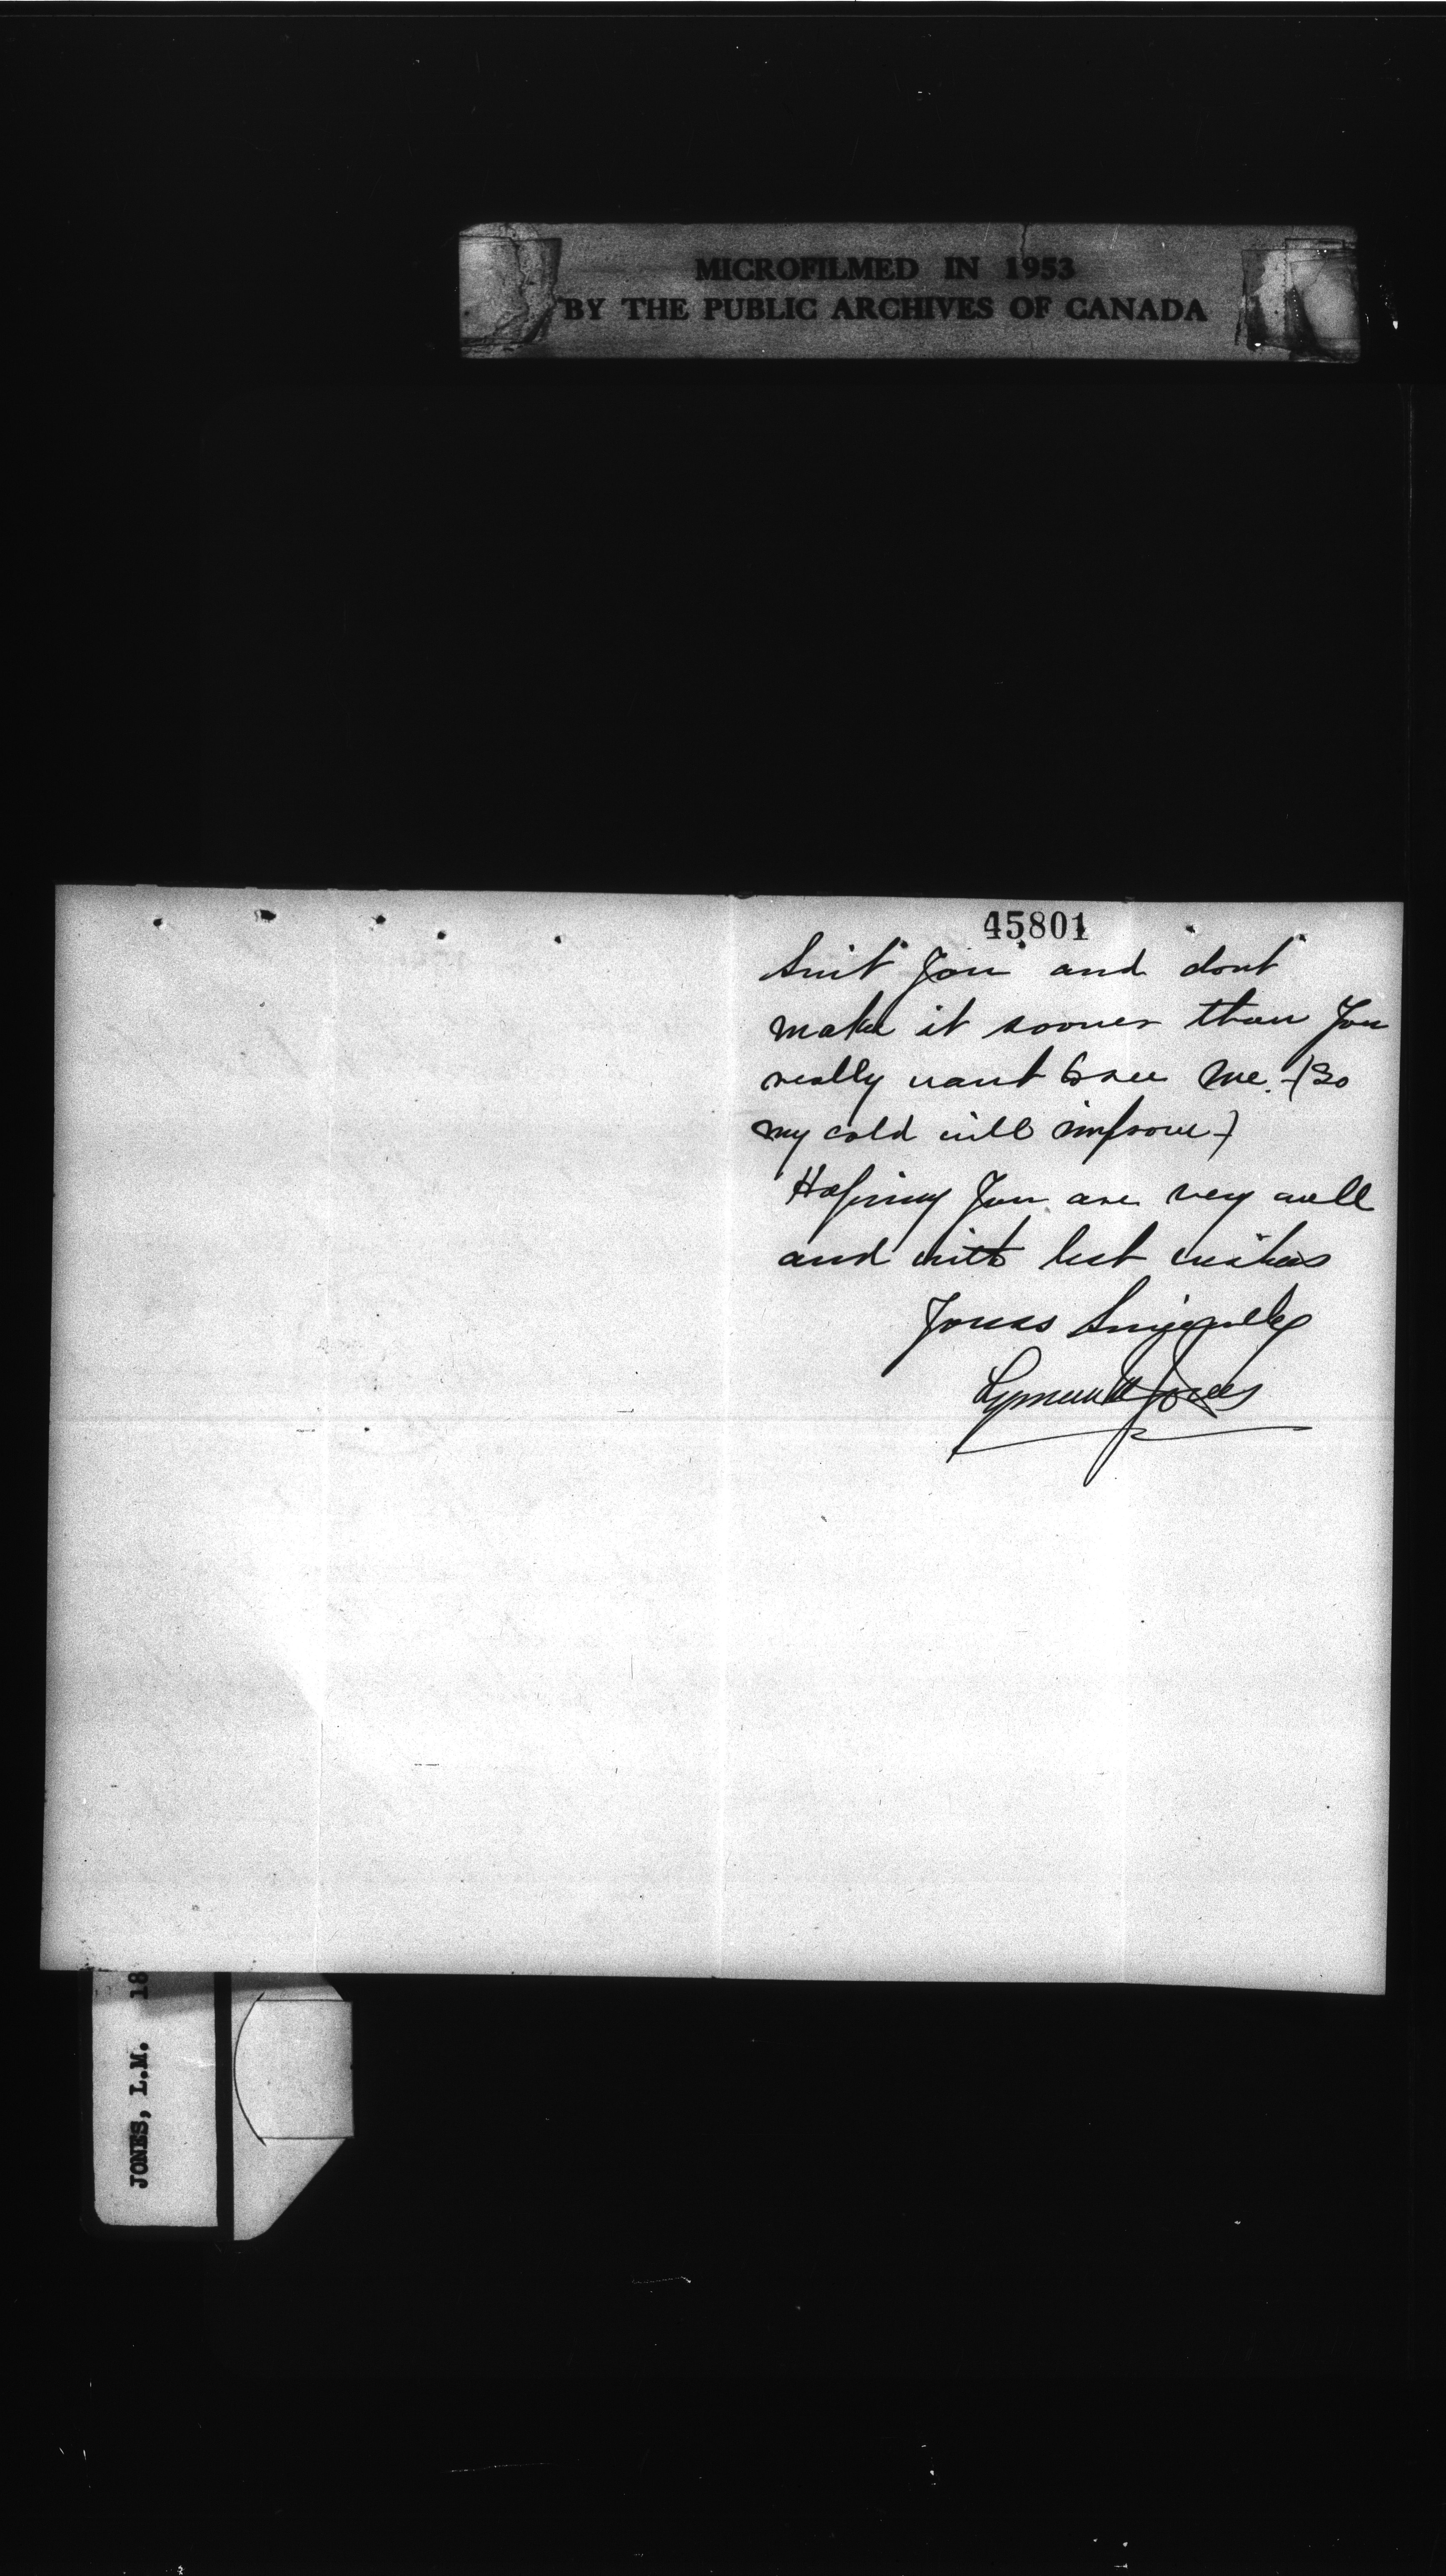 MICROFILMED IN 1953
BY THE PUBLIC ARCHIVES OF CANADA
45801
Suit You and dont
make it sooner than You
really want to see me. (So
my cold will improve)
Hoping You are very well
and with best wishes
Yours Sincerely
Lyman M Jones
JONES, L.M. 18